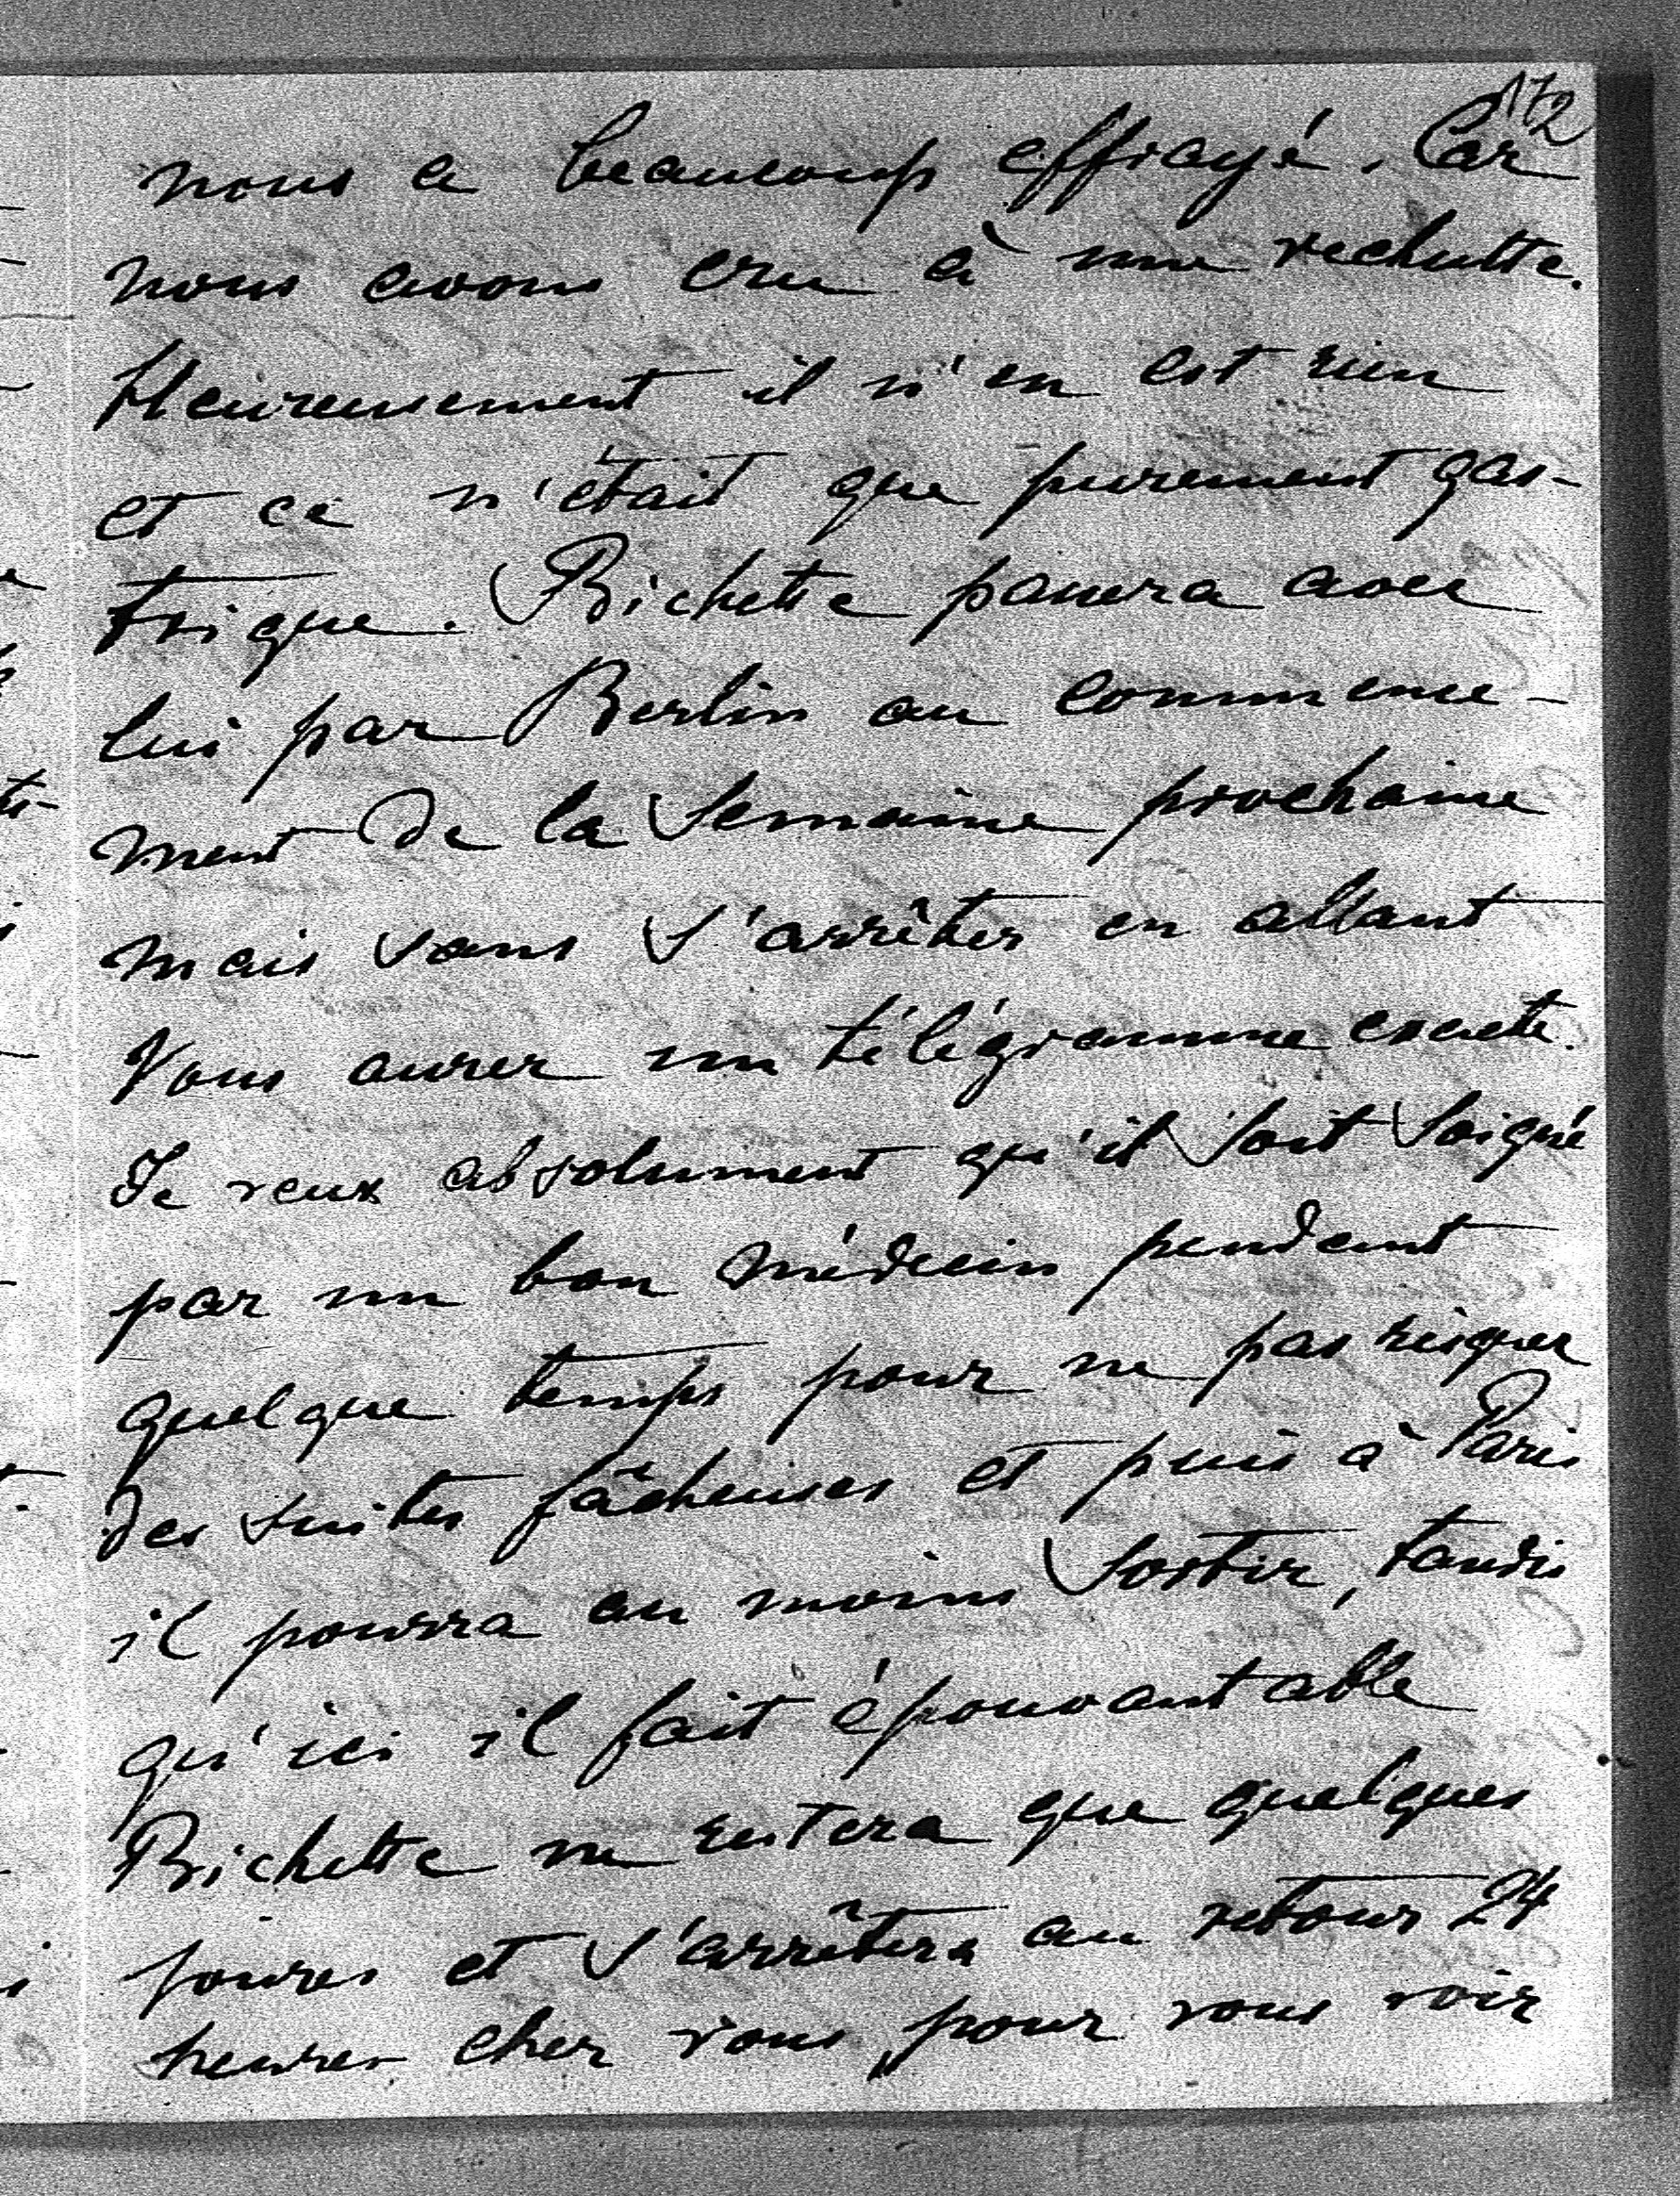 172
nous a beaucoup effrayé. Car
nous avons cru à une rechutte.
Heureusement il n'en est rien
et ce n'était que purement gas-
trique. Bichette passera avec
lui par Berlin au commence-
ment de la semaine prochaine
mais sans s'arrêter en allant
Vous aurez un télégramme exacte.
Je veux absolument qu'il soit soigné
par un bon médecin pendant
quelque temps pour ne pas risquer
des suites fâcheuses et puis à Paris
il pourra au moins sortir, tandis
qu'ici il fait épouvantable
Bichette ne restera que quelques
jours et s'arrêtera au retour 24
heures chez vous pour vous voir